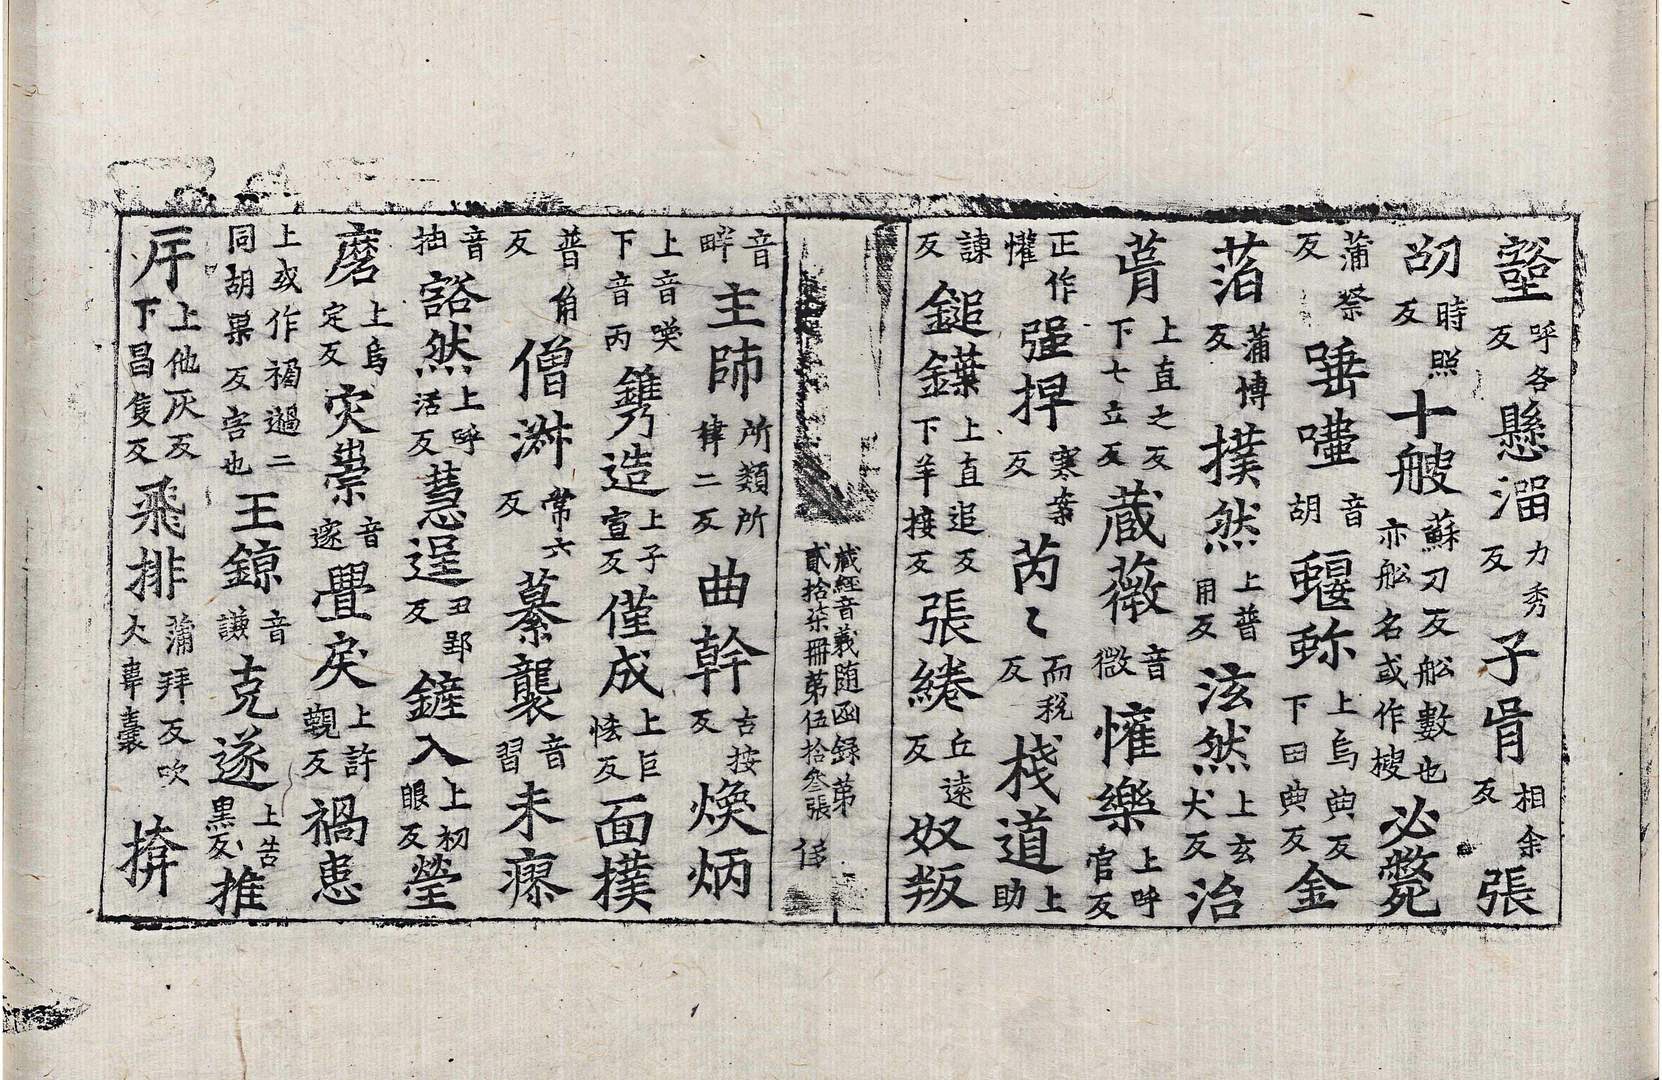 壑呼各反懸㴰力秀反子𦙍相余反張
邵時照反十艘蘇刀反船數也亦船名或作㮴必斃
蒲祭反唾𡄸音胡蝘蜓上烏典反下田典反金
萡蒲博反撲然上普用反泫然上玄犬反治
葺上直之反下七立反蔵薇音微懽樂上呼官反
正作懽強捍寒案反芮〻而税反棧道上助
諫反鎚鍱上直追反下羊接反張綣丘遠反奴叛
蔵經音義随函録第
貳拾柒冊第伍拾叄張
音畔主帥所類所律二反曲幹古按反煥炳
上音喚下音丙鐫造上子宣反僅成上巨恡反面撲
普角反僧淋常六反纂襲音習未瘳
音抽豁然上呼活反慧逞丑郢反鏟入上初眼反瑩
磨上烏定反灾祟音邃疊戾上許覲反禍恚
上或作禍過二同胡果反害也王鍄音謙克遂上告黑反推
斥上他灰反下昌隻反飛排蒲拜反吹火韋囊揜